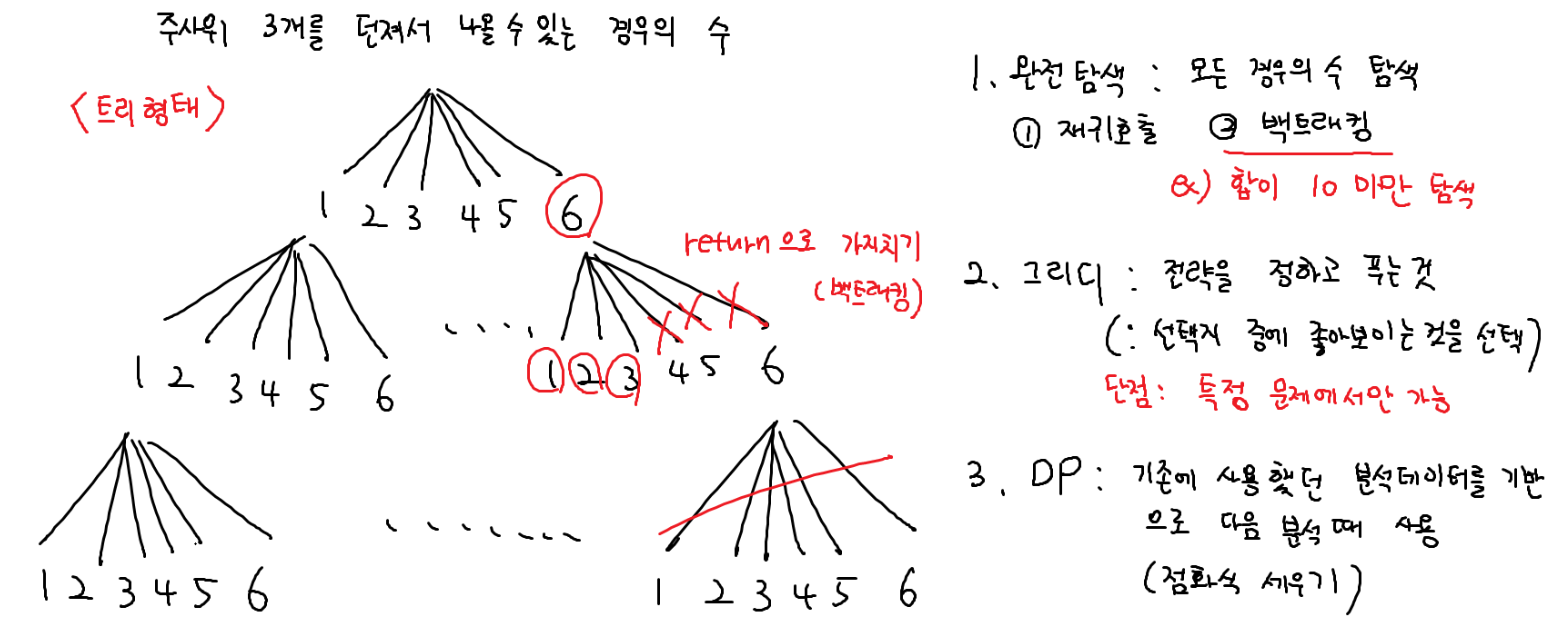 주사위 3개를 던져서 나올 수 있는 경우의 수
<트리형태>
1 2 3 4 5 6
return으로 가지치기
(백트래킹)
1 2 3 4 5 6
1 2 3 4 5 6
1 2 3 4 5 6
1 2 3 4 5 6
1. 완전탐색 : 모든 경우의 수 탐색
① 재귀호출 ② 백트래킹
ex) 합이 10 미만 탐색
2. 그리디 : 전략을 정하고 푸는것
(: 선택지 중에 좋아보이는 것을 선택)
단점: 특정 문제에서만 가능
3. DP : 기존에 사용했던 분석데이터를 기반
으로 다음 분석 때 사용
(점화식 세우기)